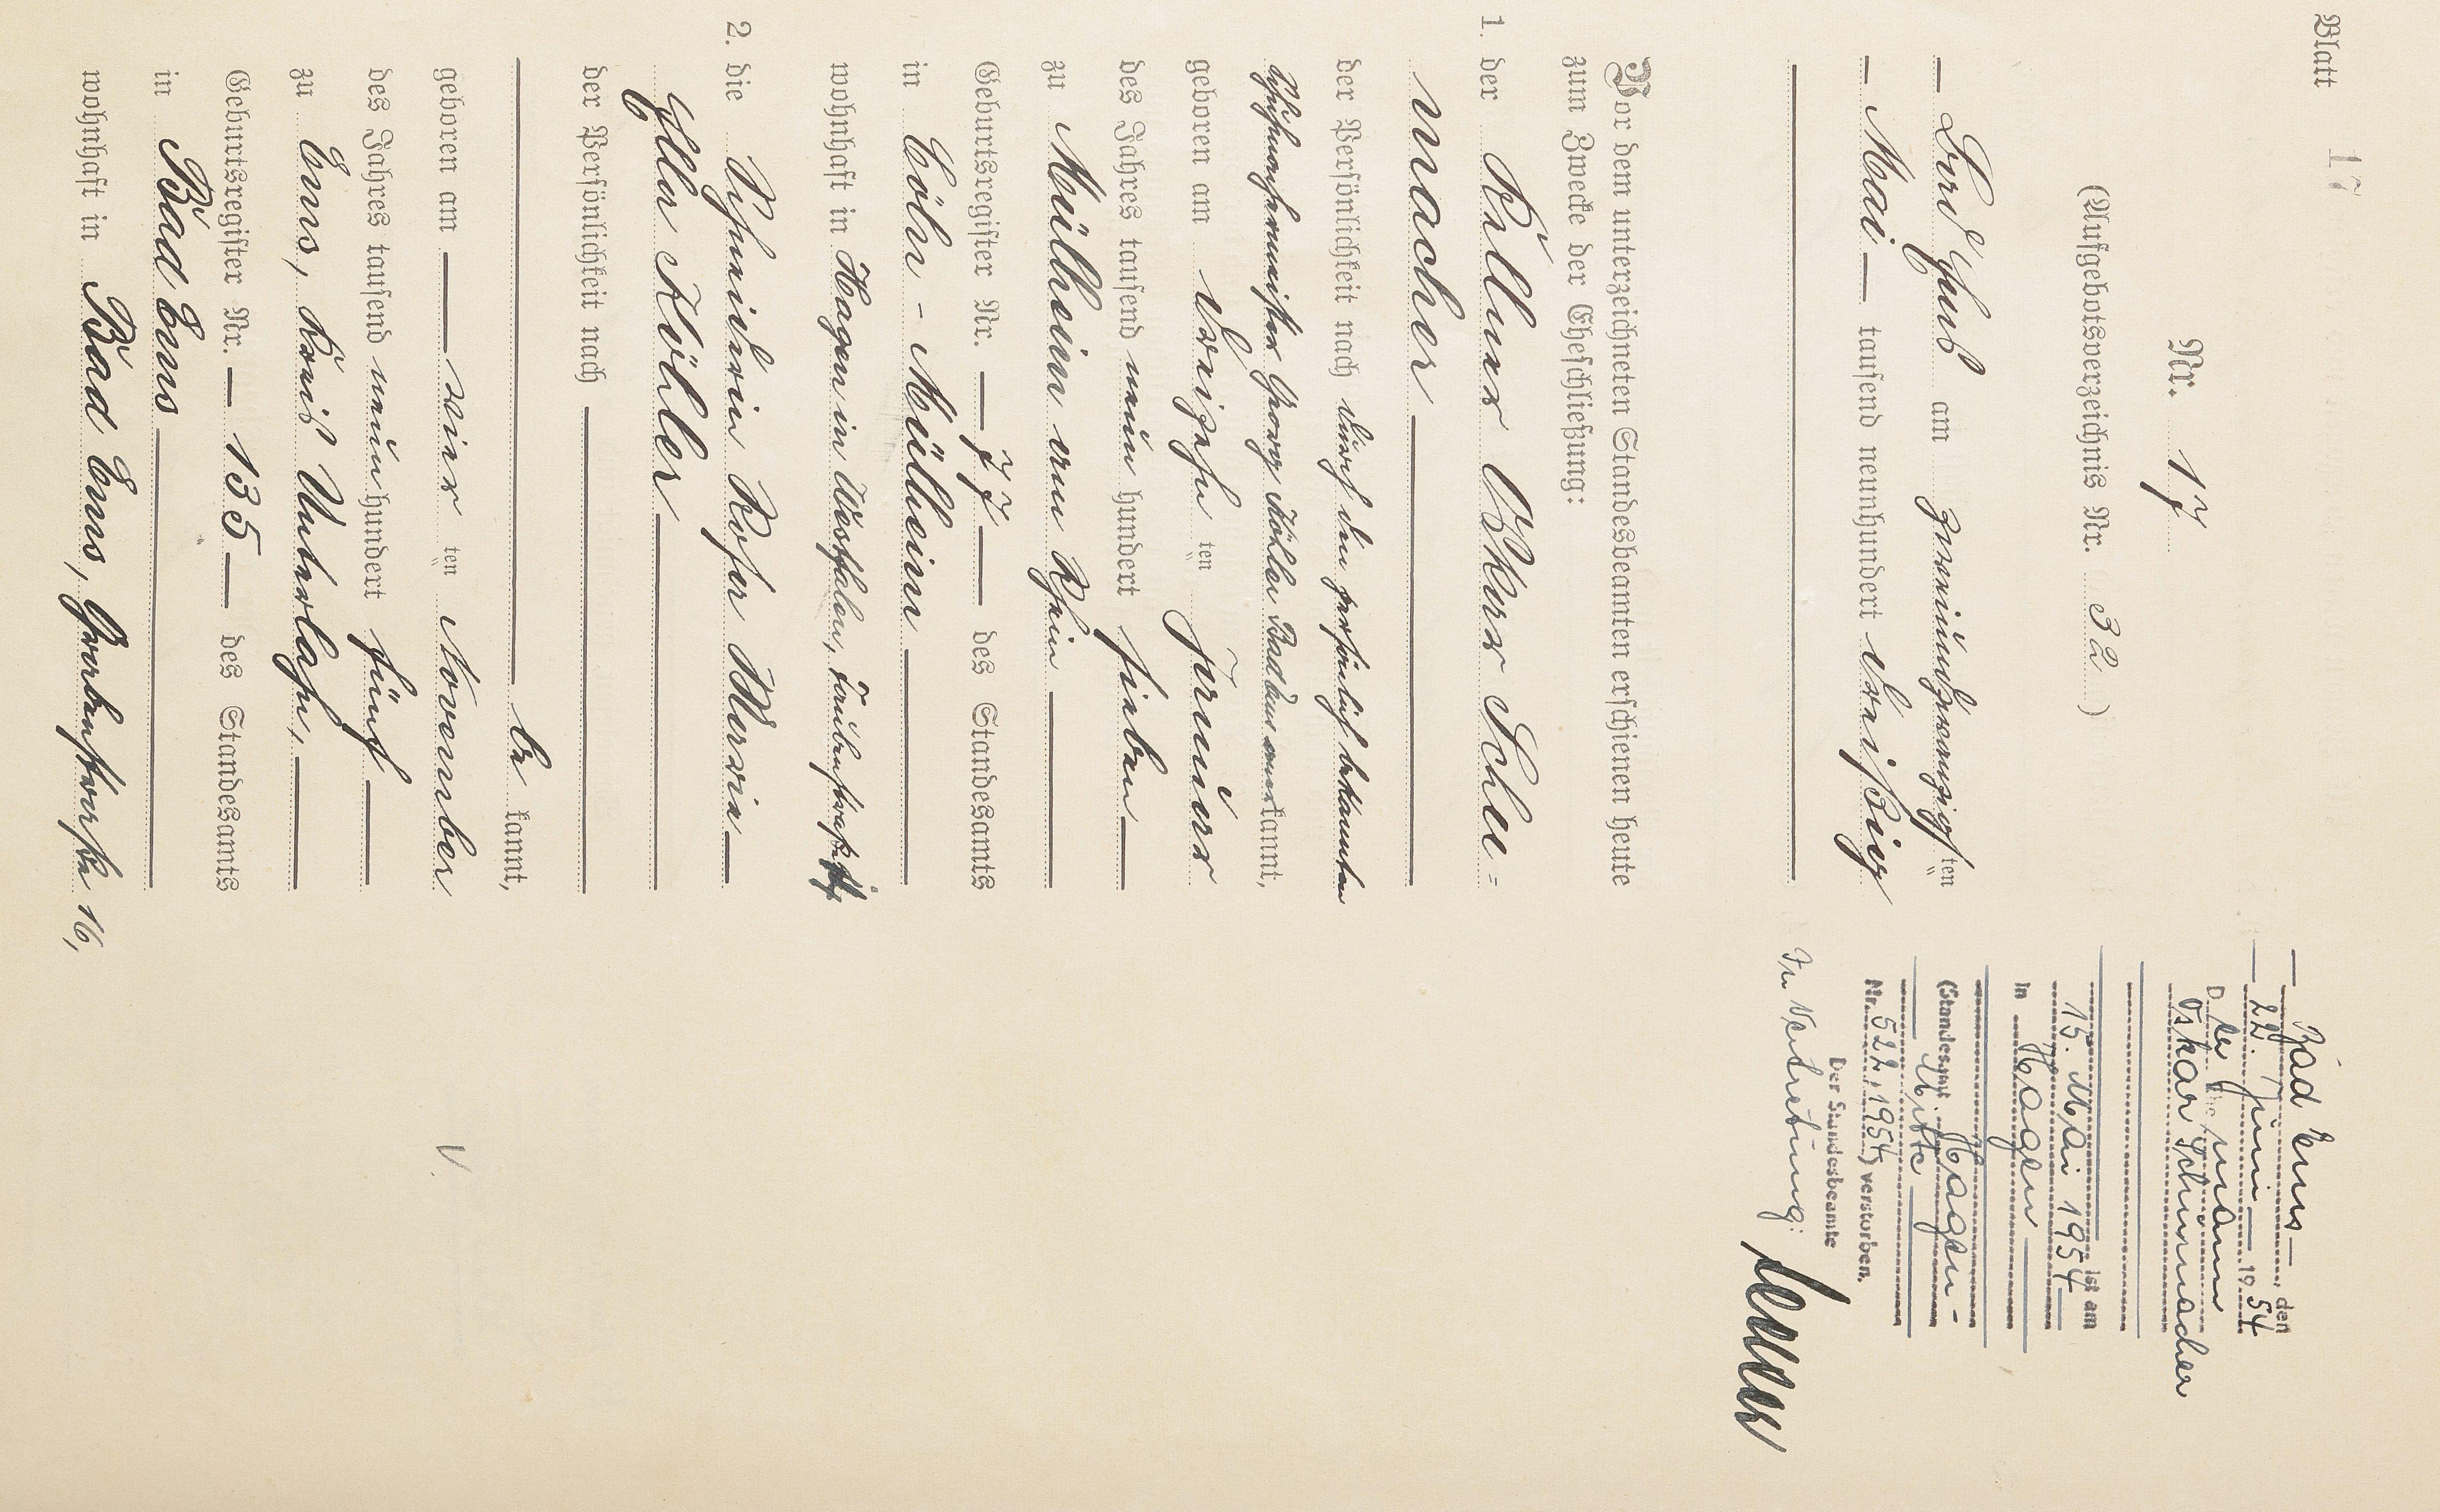 Blatt 17
Nr. 17
(Aufgebotsverzeichnis Nr. 32)
— Bad Ems am
— Mai — tausend neunhundert dreißig
Vor dem unterzeichneten Standesbeamten erschienen heute
zum Zwecke der Eheschließung:
1. der Kellner Oskar Schu=
macher
der Persönlichkeit nach durch den persönlich bekannten
Georg Köhler Bad Ems anerkannt,
geboren am dreizehn ten Januar
des Jahres tausend neun hundert sieben —
zu Mülheim am Rhein
Geburtsregister Nr. — 77 — des Standesamts
in Cöln - Mülheim
wohnhaft in Hagen in Westfalen,
2. die Rosa Maria —
Ella Köhler
der Persönlichkeit nach
be kannt,
geboren am vier ten November
des Jahres tausend neun hundert fünf
zu Ems, Kreis Unterlahn,
Geburtsregister Nr. — 135 — des Standesamts
in Bad Ems
wohnhaft in Bad Ems, 16,
— Bad Ems —, den
— 22. Juni — 1954
Der Ehemann
Oskar Schumacher
ist am
15. Mai 1954
in Hagen
(Standesamt Hagen -
Mitte
Nr. 522, 1954) verstorben.
Der Standesbeamte
In Vertretung: